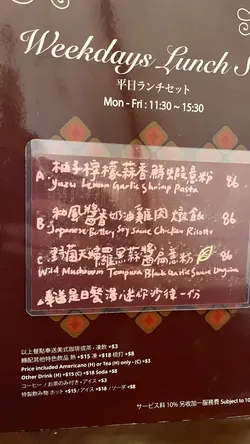 Weekdays Lunch S
平日ランチセット
Mon - Fri : 11:30 ~ 15:30
A. 柚子檸檬蒜香鮮蝦意粉 86
Yuzu Lemon Garlic Shrimp Pasta
B. 和風醬香奶油雞肉燉飯 86
Japanese Buttery Soy Sauce Chicken Risotto
C. 野菌天婦羅黑蒜醬扁意粉 86
Wild Mushroom Tempura Black Garlic Sauce Linguine
奉送是日餐湯迷你沙律一份
以上餐點奉送美式咖啡或茶，凍飲 +$3
轉配其他特色飲品 熱 +$15 凍 +$18 梳打 +$8
Price included Americano (H) or Tea (H) only，(C) +$3
Other Drink (H) +$15 (C) +$18 Soda +$8
コーヒー / お茶のみ付き，アイス +$3
特製飲み物 ホット +$15 / アイス +$18 / ソーダ +$8
サービス料 10% 另收加一服務費 Subject to 10